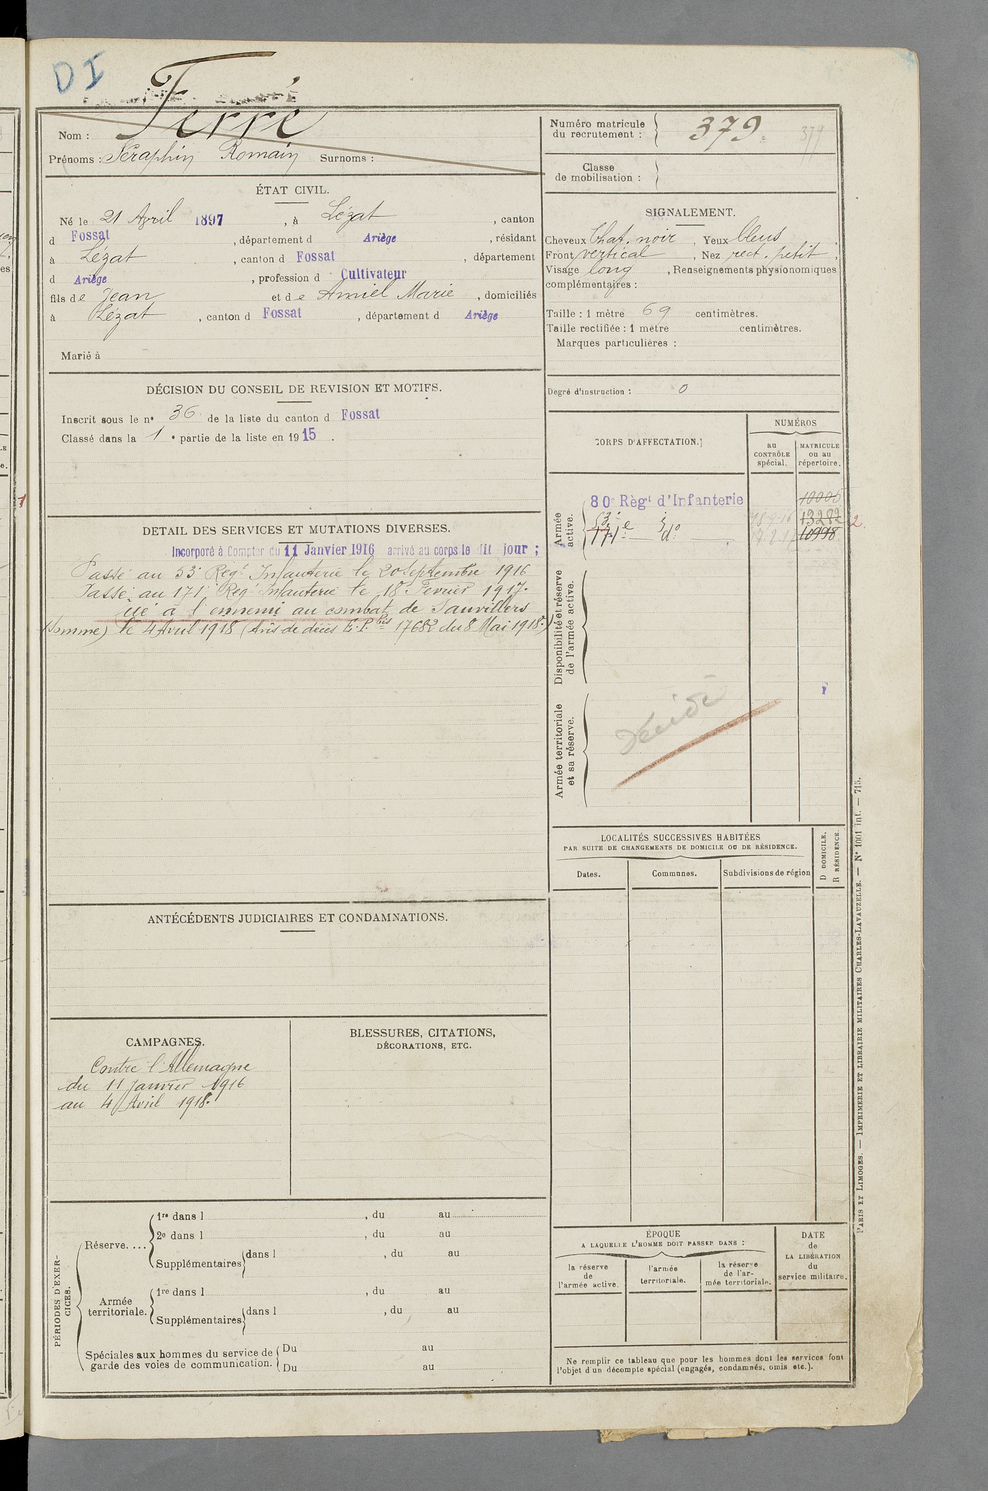 DI
Ferré
Nom :
Prénoms : Séraphin Romain Surnoms :
Numéro matricule
du recrutement : 379.
379
Classe
de mobilisation :
ÉTAT CIVIL.
Né le 21 Avril 1897, à Lézat, canton
d Fossat, département d Ariège, résidant
à Lézat, canton d Fossat, département
d Ariège, profession d Cultivateur
fils de Jean et de Amiel Marie, domiciliés
à Lézat, canton d Fossat, département d Ariège
Marié à
SIGNALEMENT.
Cheveux Chat. noir, Yeux bleus.
Front vertical, Nez rect. petit.
Visage long, Renseignements physionomiques
complémentaires :
Taille : 1 mètre 69 centimètres.
Taille rectifiée : 1 mètre centimètres.
Marques particulières :
Degré d'instruction : 0
DÉCISION DU CONSEIL DE REVISION ET MOTIFS.
Inscrit sous le n° 36 de la liste du canton d Fossat
Classé dans la 1e partie de la liste en 1915.
DETAIL DES SERVICES ET MUTATIONS DIVERSES.
Incorporé à Compter du 11 Janvier 1916 arrivé au corps le dit jour ;
Passé au 53e Regt Infanterie le 20 Septembre 1916
Passé au 171e Regt Infanterie le 18 Fevrier 1917.
Tué à l'ennemi au combat de Sauvillers
(Somme) le 4 Avril 1918 (Avis de décès E.P. 17682 du 8 Mai 1918.)
CORPS D'AFFECTATION.
NUMÉROS
au
CONTRÔLE
spécial.
MATRICULE
ou au
répertoire.
Armée
active.
80e Régt d'Infanterie 10005
53e do 13282
171e do 10998
Disponibilité et réserve
de l'armée active.
Armée territoriale
et sa réserve.
Décédé
LOCALITÉS SUCCESSIVES HABITÉES
PAR SUITE DE CHANGEMENTS DE DOMICILE OU DE RÉSIDENCE.
D DOMICILE.
R RÉSIDENCE.
Dates. Communes. Subdivisions de région
ANTÉCÉDENTS JUDICIAIRES ET CONDAMNATIONS.
CAMPAGNES.
Contre l'Allemagne
du 11 Janvier 1916
au 4 Avril 1918.
BLESSURES, CITATIONS,
DÉCORATIONS, ETC.
PÉRIODES D'EXER-
CICES.
Réserve....
1re dans l , du au
2e dans l , du au
Supplémentaires dans l , du au
Armée
territoriale.
1re dans l , du au
Supplémentaires dans l , du au
Spéciales aux hommes du service de
garde des voies de communication.
Du au
Du au
ÉPOQUE
A LAQUELLE L'HOMME DOIT PASSER DANS :
la réserve
de
l'armée active.
l'armée
territoriale.
la réserve
de l'ar-
mée territoriale.
DATE
de
LA LIBÉRATION
du
service militaire.
Ne remplir ce tableau que pour les hommes dont les services font
l'objet d'un décompte spécial (engagés, condamnés, omis etc.).
PARIS ET LIMOGES. — IMPRIMERIE ET LIBRAIRIE MILITAIRES CHARLES-LAVAUZELLE. — N° 1001 inf. — 715.